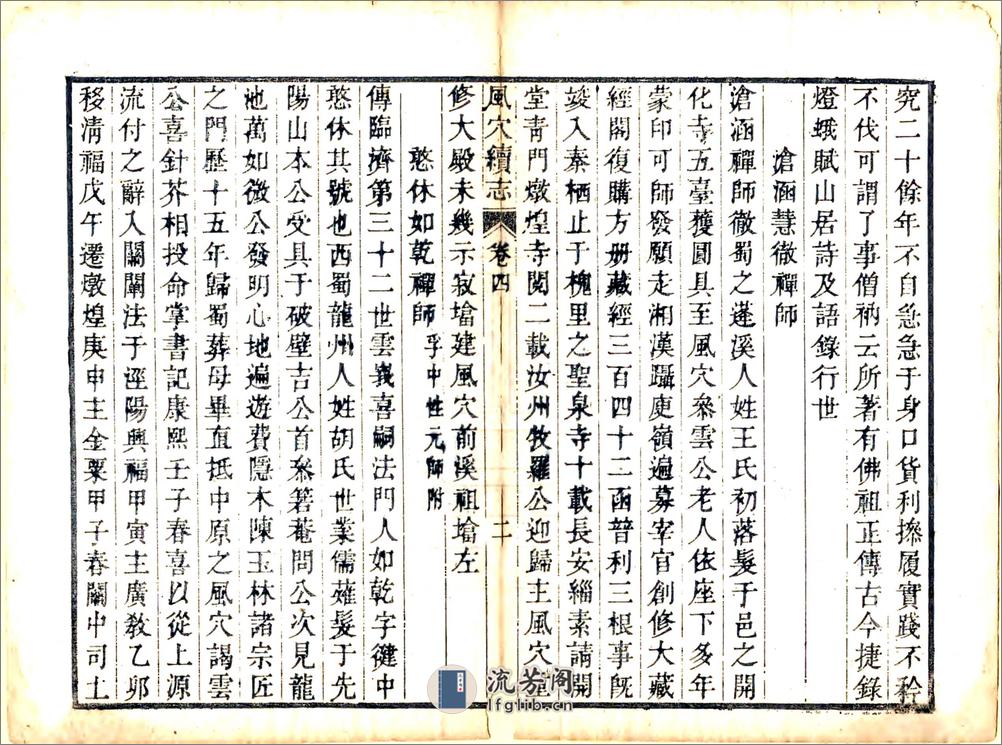 究二十餘年不自急急于身口貨利擦履實踐不矜
不伐可謂了事僧衲云所著有佛祖正傳古今捷錄
燈蛾賦山居詩及語錄行世
滄涵慧徹禪師
滄涵禪師徹蜀之蓬溪人姓王氏初落髮于邑之開
化寺五臺獲圓具至風穴叅雲公老人依座下多年
蒙印可師發願走湘漢躡庾嶺遍募宰官創修大藏
經閣復購方册藏經三百四十二函普利三根事旣
竣入秦栖止于槐里之聖泉寺十載長安緇素請開
堂青門燉煌寺閱二載汝州牧羅公迎歸主風穴
風穴續志 卷四 二
修大殿未幾示寂墖建風穴前溪祖墖左
憨休如乾禪師 乎中性元師附
傳臨濟第三十二世雲峩喜嗣法門人如乾字健中
憨休其號也西蜀龍州人姓胡氏世業儒薙髮于先
陽山本公受具于破壁吉公首叅箬菴問公次見龍
池萬如微公發明心地遍遊費隱木陳玉林諸宗匠
之門歷十五年歸蜀葬母畢直抵中原之風穴謁雲
公喜針芥相投命掌書記康熙壬子春喜以從上源
流付之辭入關闡法于涇陽興福甲寅主廣敎乙夘
移淸福戊午遷燉煌庚申主金粟甲子春關中司土
流芳阁
lfglib.cn